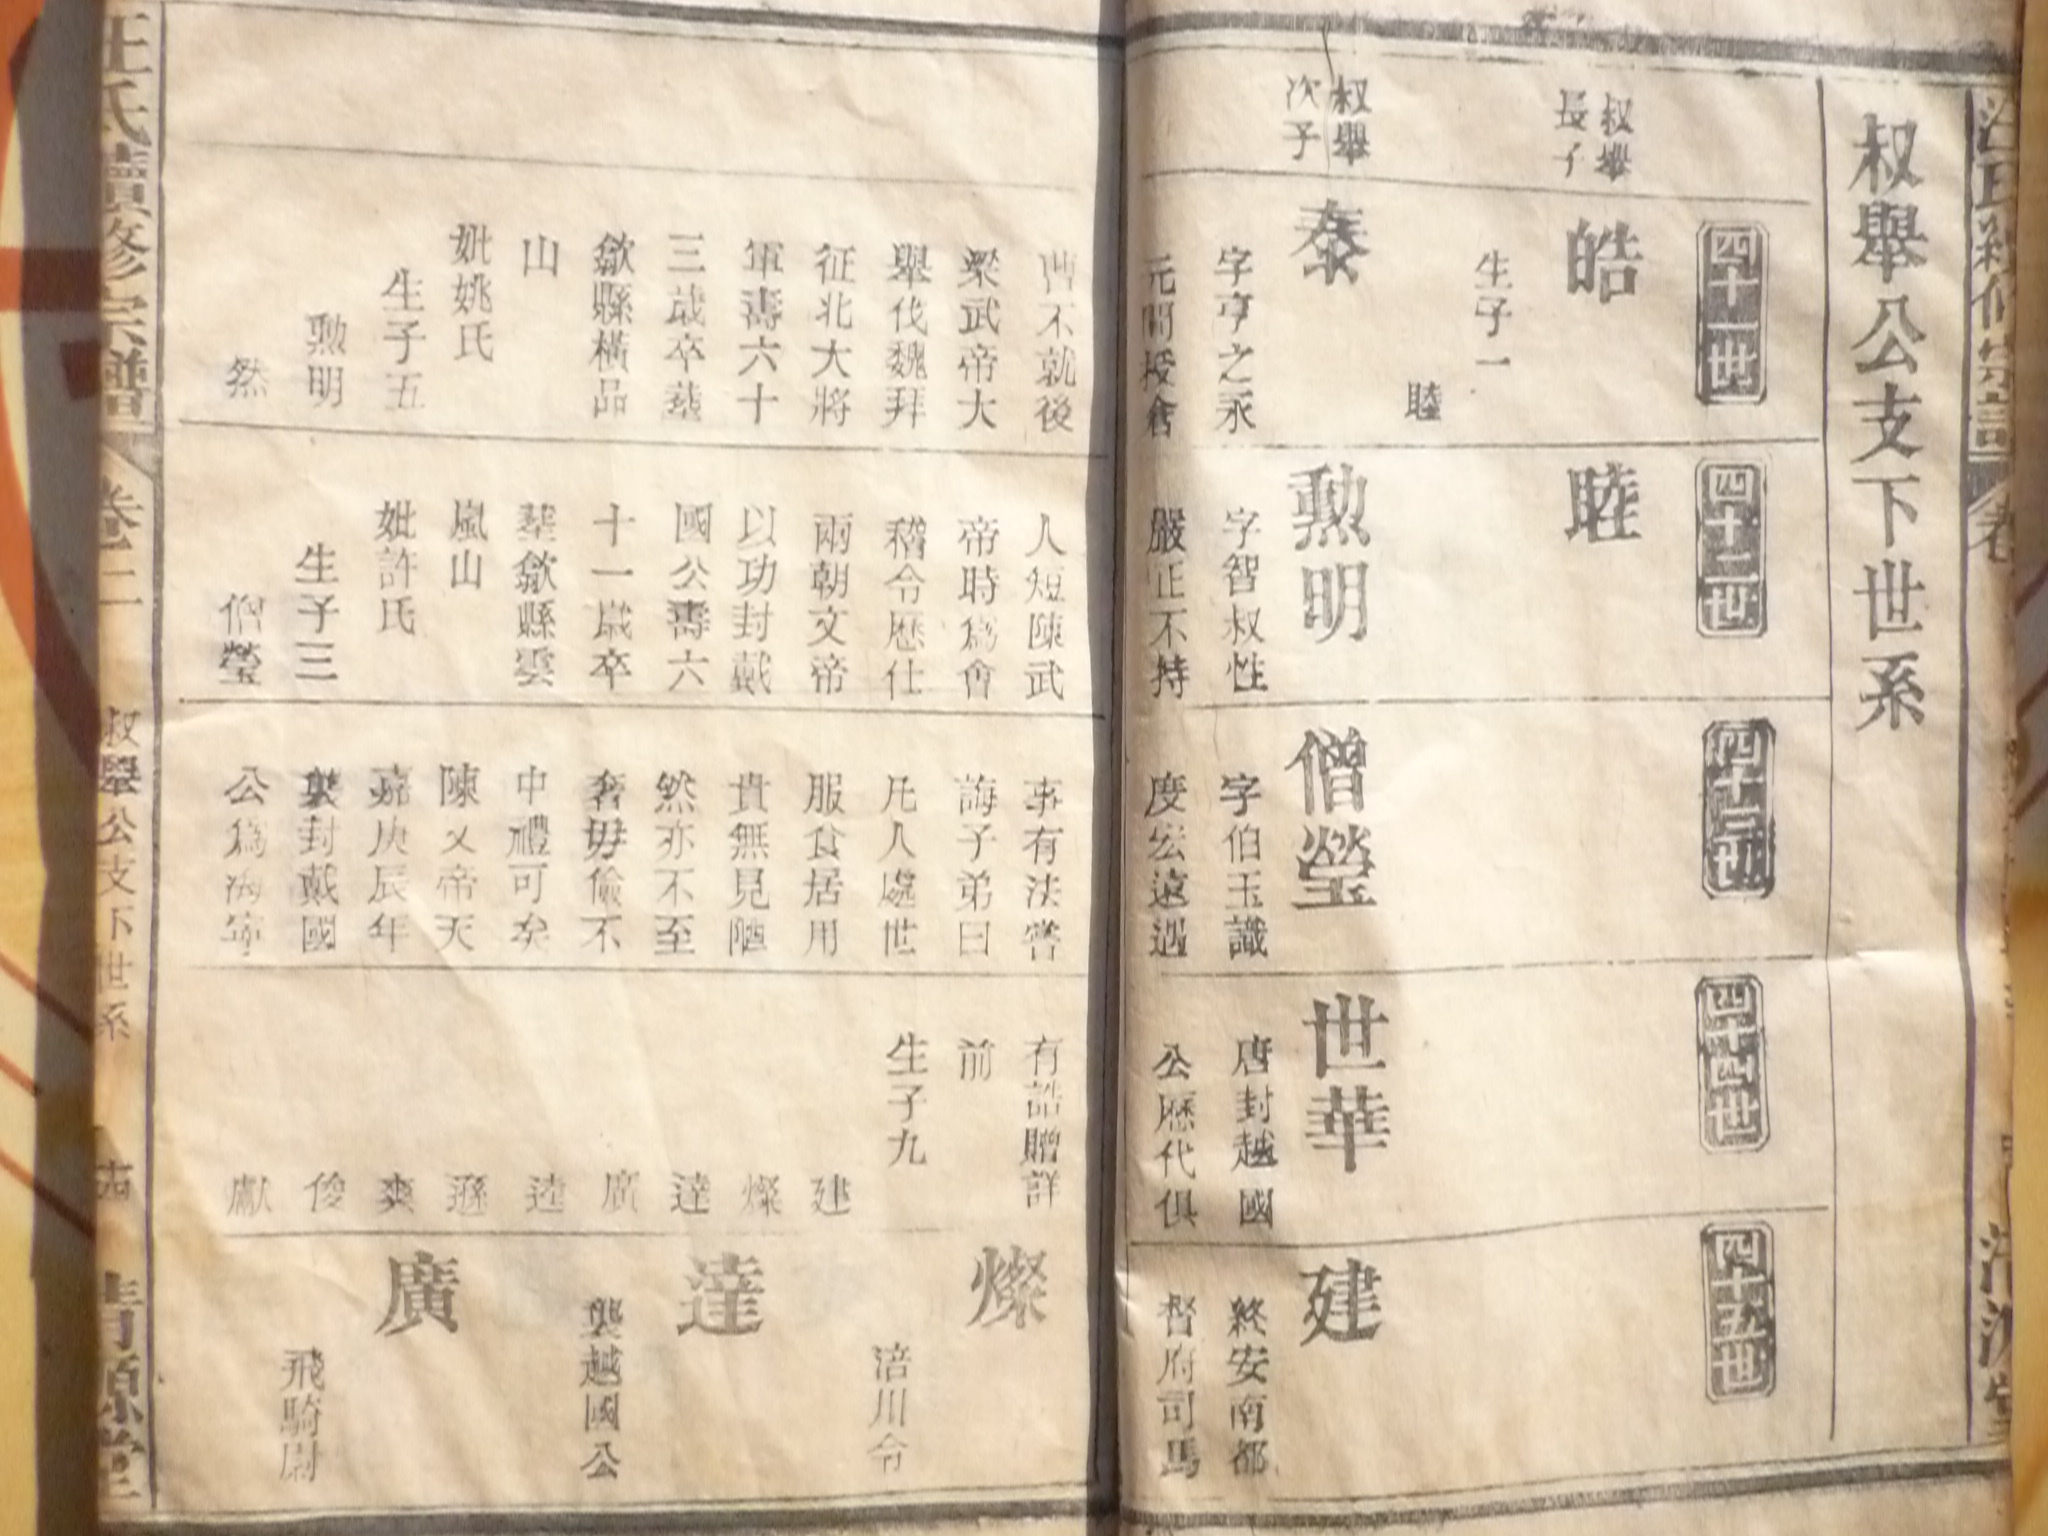 叔舉公支下世系
四十一世
叔舉
長子
皓
生子一
睦
叔舉
次子
泰
字亨之永
元間授會
曹不就後
梁武帝大
舉伐魏拜
征北大將
軍壽六十
三歲卒葬
歙縣橫品
山
妣姚氏
生子五
勲明
然
四十二世
睦
勲明
字智叔性
嚴正不持
人短陳武
帝時為會
稽令歷仕
兩朝文帝
以功封戴
國公壽六
十一歲卒
塟歙縣雲
嵐山
妣許氏
生子三
僧瑩
四十三世
僧瑩
字伯玉識
度宏遠遇
事有法嘗
誨子弟曰
凡人處世
服食居用
貴無見陋
然亦不至
奢毋儉不
中禮可矣
陳文帝天
嘉庚辰年
襲封戴國
公為海寧
四十四世
世華
唐封越國
公歷代俱
有誥贈詳
前
生子九
建
燦
達
廣
逵
遜
爽
俊
獻
四十五世
建
終安南都
督府司馬
燦
涪川令
達
襲越國公
廣
飛騎尉
汪氏續修宗譜
卷二
叔舉公支下世系
清源堂